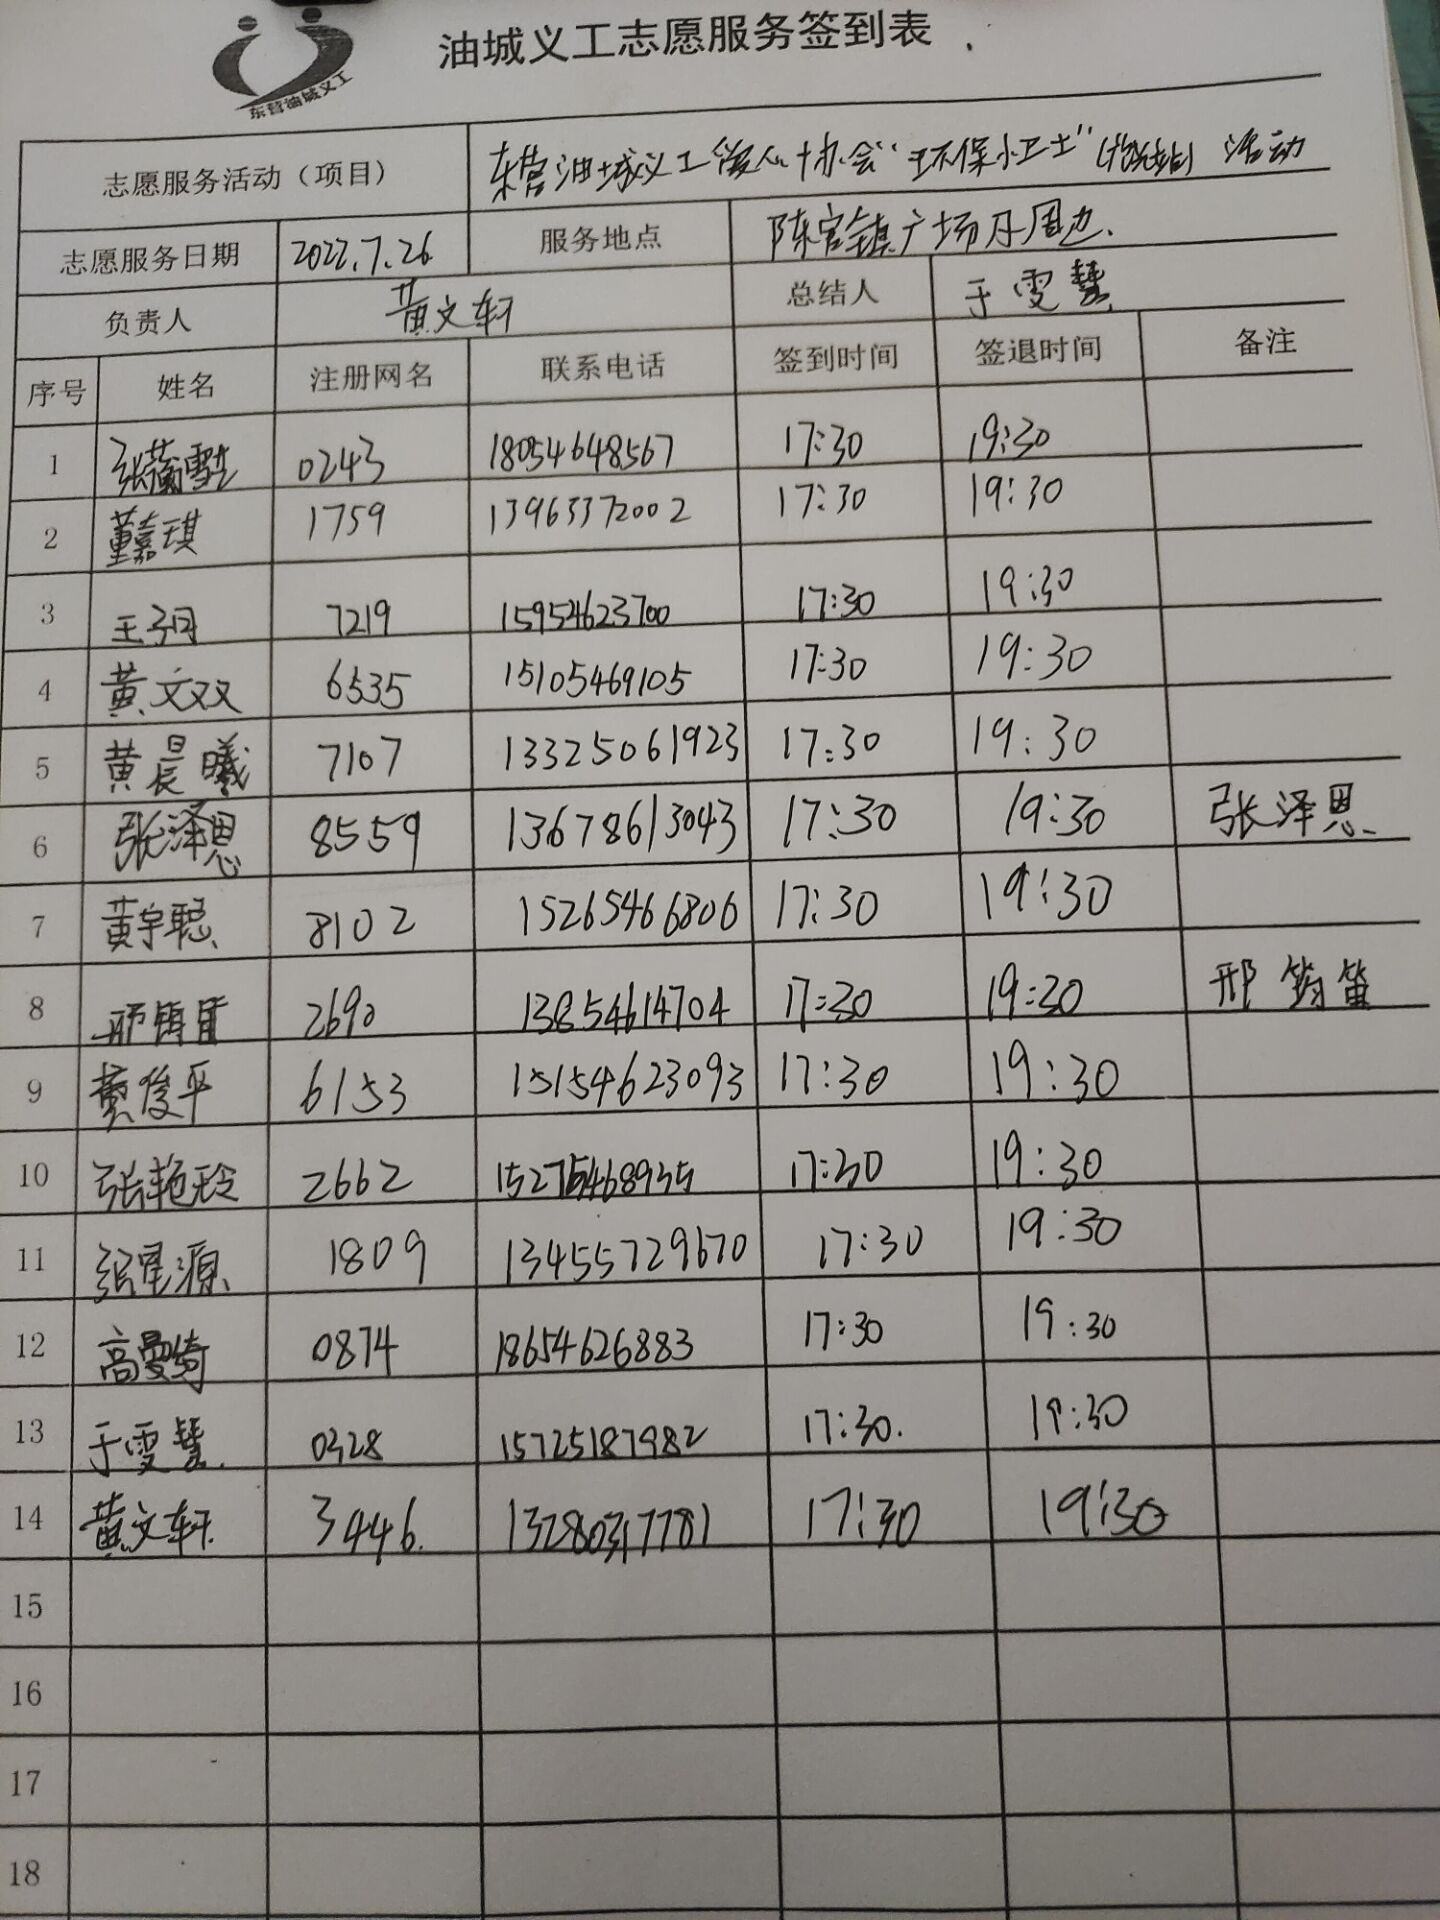 东营油城义工
油城义工志愿服务签到表
志愿服务活动（项目） 东营油城义工 协会“环保小卫士” 活动
志愿服务日期 2022.7.26 服务地点 陈官镇广场及周边.
负责人 黄文轩 总结人 于雯慧
序号 姓名 注册网名 联系电话 签到时间 签退时间 备注
1 0243 18054648567 17:30 19:30
2 董嘉琪 1759 13963372002 17:30 19:30
3 王子月 7219 15954623700 17:30 19:30
4 黄文双 6535 15105469105 17:30 19:30
5 黄晨曦 7107 13325061923 17:30 19:30
6 张泽恩 8559 13678613043 17:30 19:30 张泽恩
7 黄宇聪 8102 15265466806 17:30 19:30
8 邢筠笛 2690 13854614704 17:30 19:30 邢筠笛
9 黄俊平 6153 15154623093 17:30 19:30
10 张艳玲 2662 15275468935 17:30 19:30
11 张星源 1809 13455729670 17:30 19:30
12 高曼绮 0874 18654626883 17:30 19:30
13 于雯慧 0328 15725187982 17:30. 19:30
14 黄文轩 3446. 13280317781 17:30 19:30
15
16
17
18